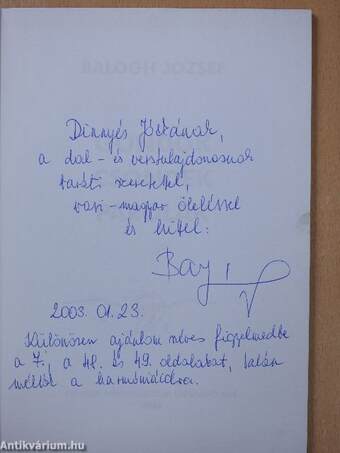 BALOGH JÓZSEF
Dinnyés Józsinak,
a dal- és verstulajdonosnak
baráti szeretettel,
vasi-magyar öleléssel
és hittel:
2003. 01. 23.
Különösen ajánlom neves figyelmedbe
a 7., a 48. és 49. oldalakat, talán
méltók a harmóniáidra.
Antikvárium.hu